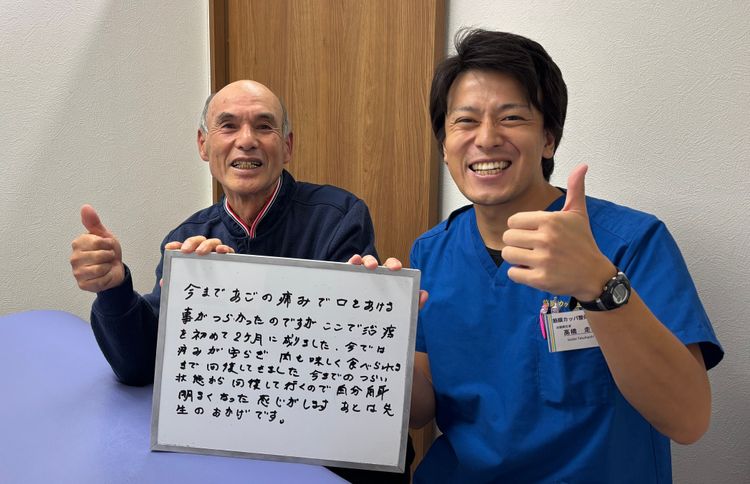 今まであごの痛みで口をあける
事がつらかったのですが ここで治療
を初めて2ケ月に成りました、今では
痛みが安らぎ 肉も味しく食べられる
まで回復してきました 今までのつらい
状態から回復して行くので自分自身
明るくなった感じがします あとは先
生のおかげです。
高橋